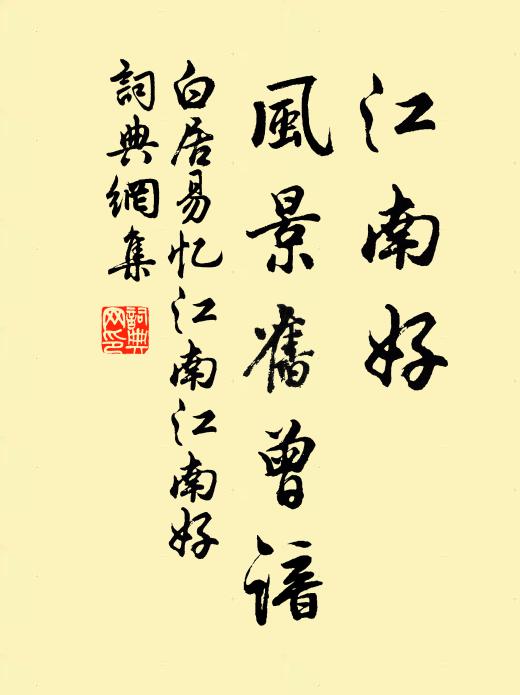 江南好
風景舊曾諳
白居易忆江南江南好
詞典網集
詞典
网印